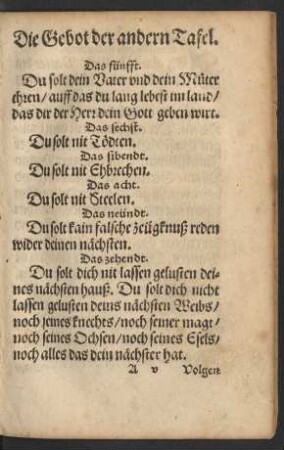 Die Gebot der andern Tafel.
Das fünfft.
Du solt dein Vater vnd dein Mûter
ehren/ auff das du lang lebest im land/
das dir der Herr dein Gott geben wirt.
Das sechst.
Du solt nit Tödten.
Das sibendt.
Du solt nit Ehbrechen.
Das acht.
Du solt nit Steelen.
Das neündt.
Du solt kain falsche zeügknuß reden
wider deinen nächsten.
Das zehendt.
Du solt dich nit lassen gelusten dei-
nes nächsten hauß. Du solt dich nicht
lassen gelusten deins nächsten Weibs/
noch seines knechts/ noch seiner magt/
noch seines Ochsen/ noch seines Esels/
noch alles das dein nächster hat.
A v Volgen